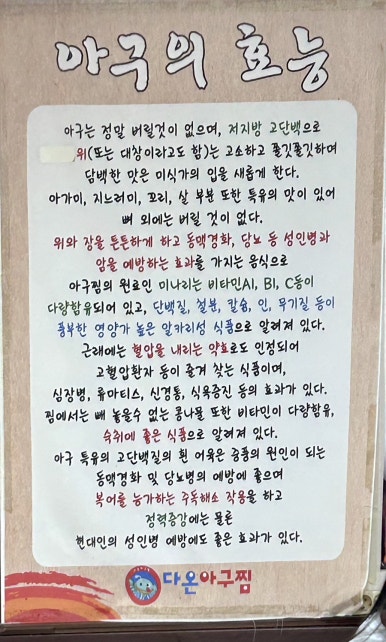 아구의 효능
아구는 정말 버릴것이 없으며, 저지방 고단백으로
위(또는 대창이라고도 함)는 고소하고 쫄깃쫄깃하며
담백한 맛은 미식가의 입을 새롭게 한다.
아가미, 지느러미, 꼬리, 살 부분 또한 특유의 맛이 있어
뼈 외에는 버릴 것이 없다.
위와 장을 튼튼하게 하고 동맥경화, 당뇨 등 성인병과
암을 예방하는 효과를 가지는 음식으로
아구찜의 원료인 미나리는 비타민AI, BI, C등이
다량함유되어 있고, 단백질, 철분, 칼슘, 인, 무기질 등이
풍부한 영양가 높은 알카리성 식품으로 알려져 있다.
근래에는 혈압을 내리는 약효로도 인정되어
고혈압환자 등이 즐겨 찾는 식품이며,
심장병, 류마티스, 신경통, 식욕증진 등의 효과가 있다.
찜에서는 빼 놓을수 없는 콩나물 또한 비타민이 다량함유,
숙취에 좋은 식품으로 알려져 있다.
아구 특유의 고단백질의 흰 어육은 중풍의 원인이 되는
동맥경화 및 당뇨병의 예방에 좋으며
복어를 능가하는 주독해소 작용을 하고
정력증강에는 물론
현대인의 성인병 예방에도 좋은 효과가 있다.
다온아구찜